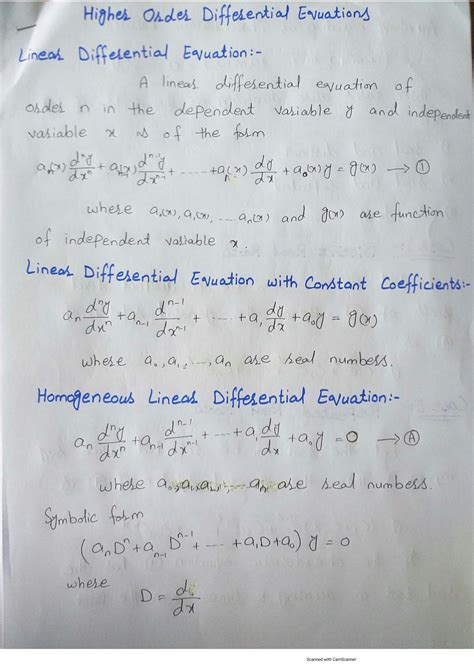 Higher Order Differential Equations
Linear Differential Equation:-
A linear differential equation of
order n in the dependent variable y and independent
variable x is of the form
aₙ(x) dⁿy/dxⁿ + aₙ₋₁(x) dⁿ⁻¹y/dxⁿ⁻¹ + ...... + a₁(x) dy/dx + a₀(x) y = g(x) → ①
where a₀(x), a₁(x), .... aₙ(x) and g(x) are function
of independent variable x.
Linear Differential Equation with Constant Coefficients:-
aₙ dⁿy/dxⁿ + aₙ₋₁ dⁿ⁻¹/dxⁿ⁻¹ + ... + a₁ dy/dx + a₀y = g(x)
where a₀, a₁, ..., aₙ are real numbers.
Homogeneous Linear Differential Equation:-
aₙ dⁿy/dxⁿ + aₙ₋₁ dⁿ⁻¹/dxⁿ⁻¹ + ... + a₁ dy/dx + a₀ y = 0 → Ⓐ
where are real numbers.
Symbolic form
(aₙDⁿ + aₙ₋₁ Dⁿ⁻¹ + ... + a₁D + a₀) y = 0
where
D = d/dx
Scanned with CamScanner